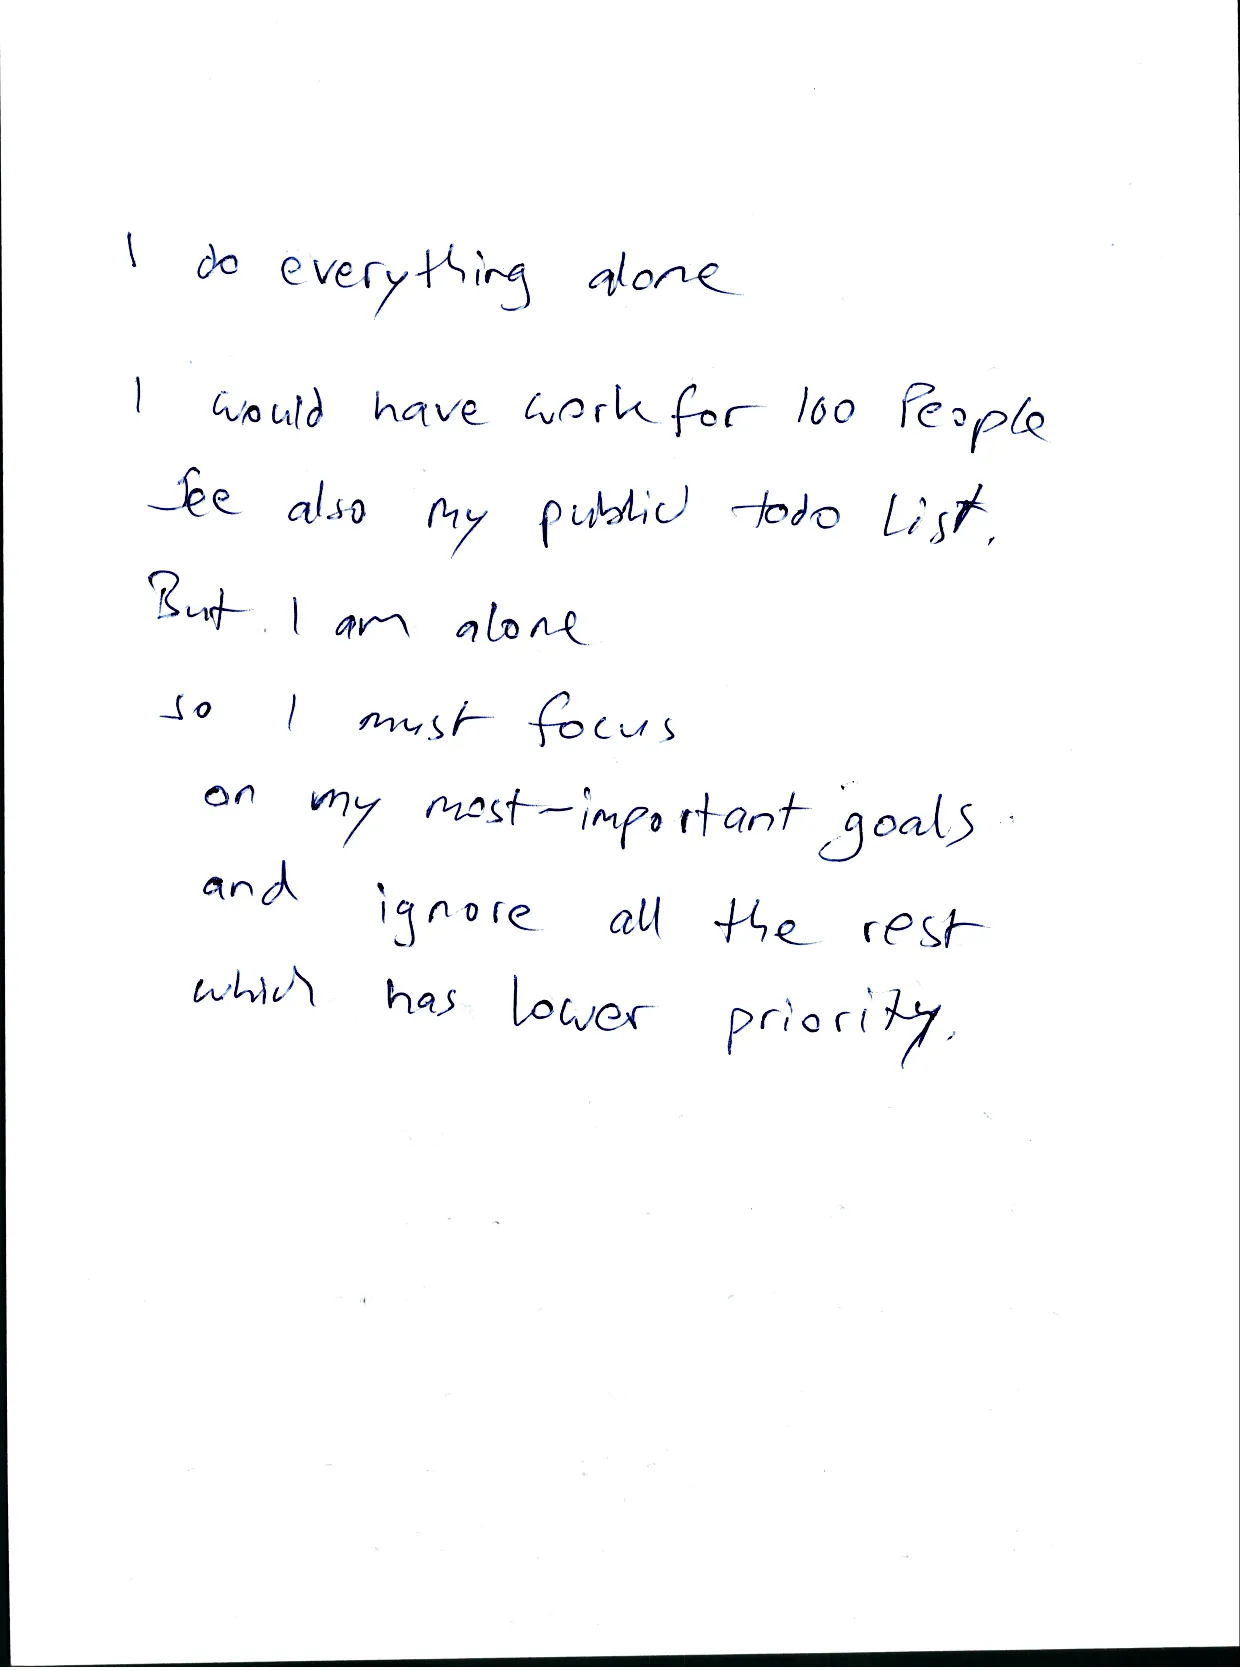 I do everything alone
I would have work for 100 People
See also my public todo List.
But I am alone
so I must focus
on my most-important goals
and ignore all the rest
which has lower priority.